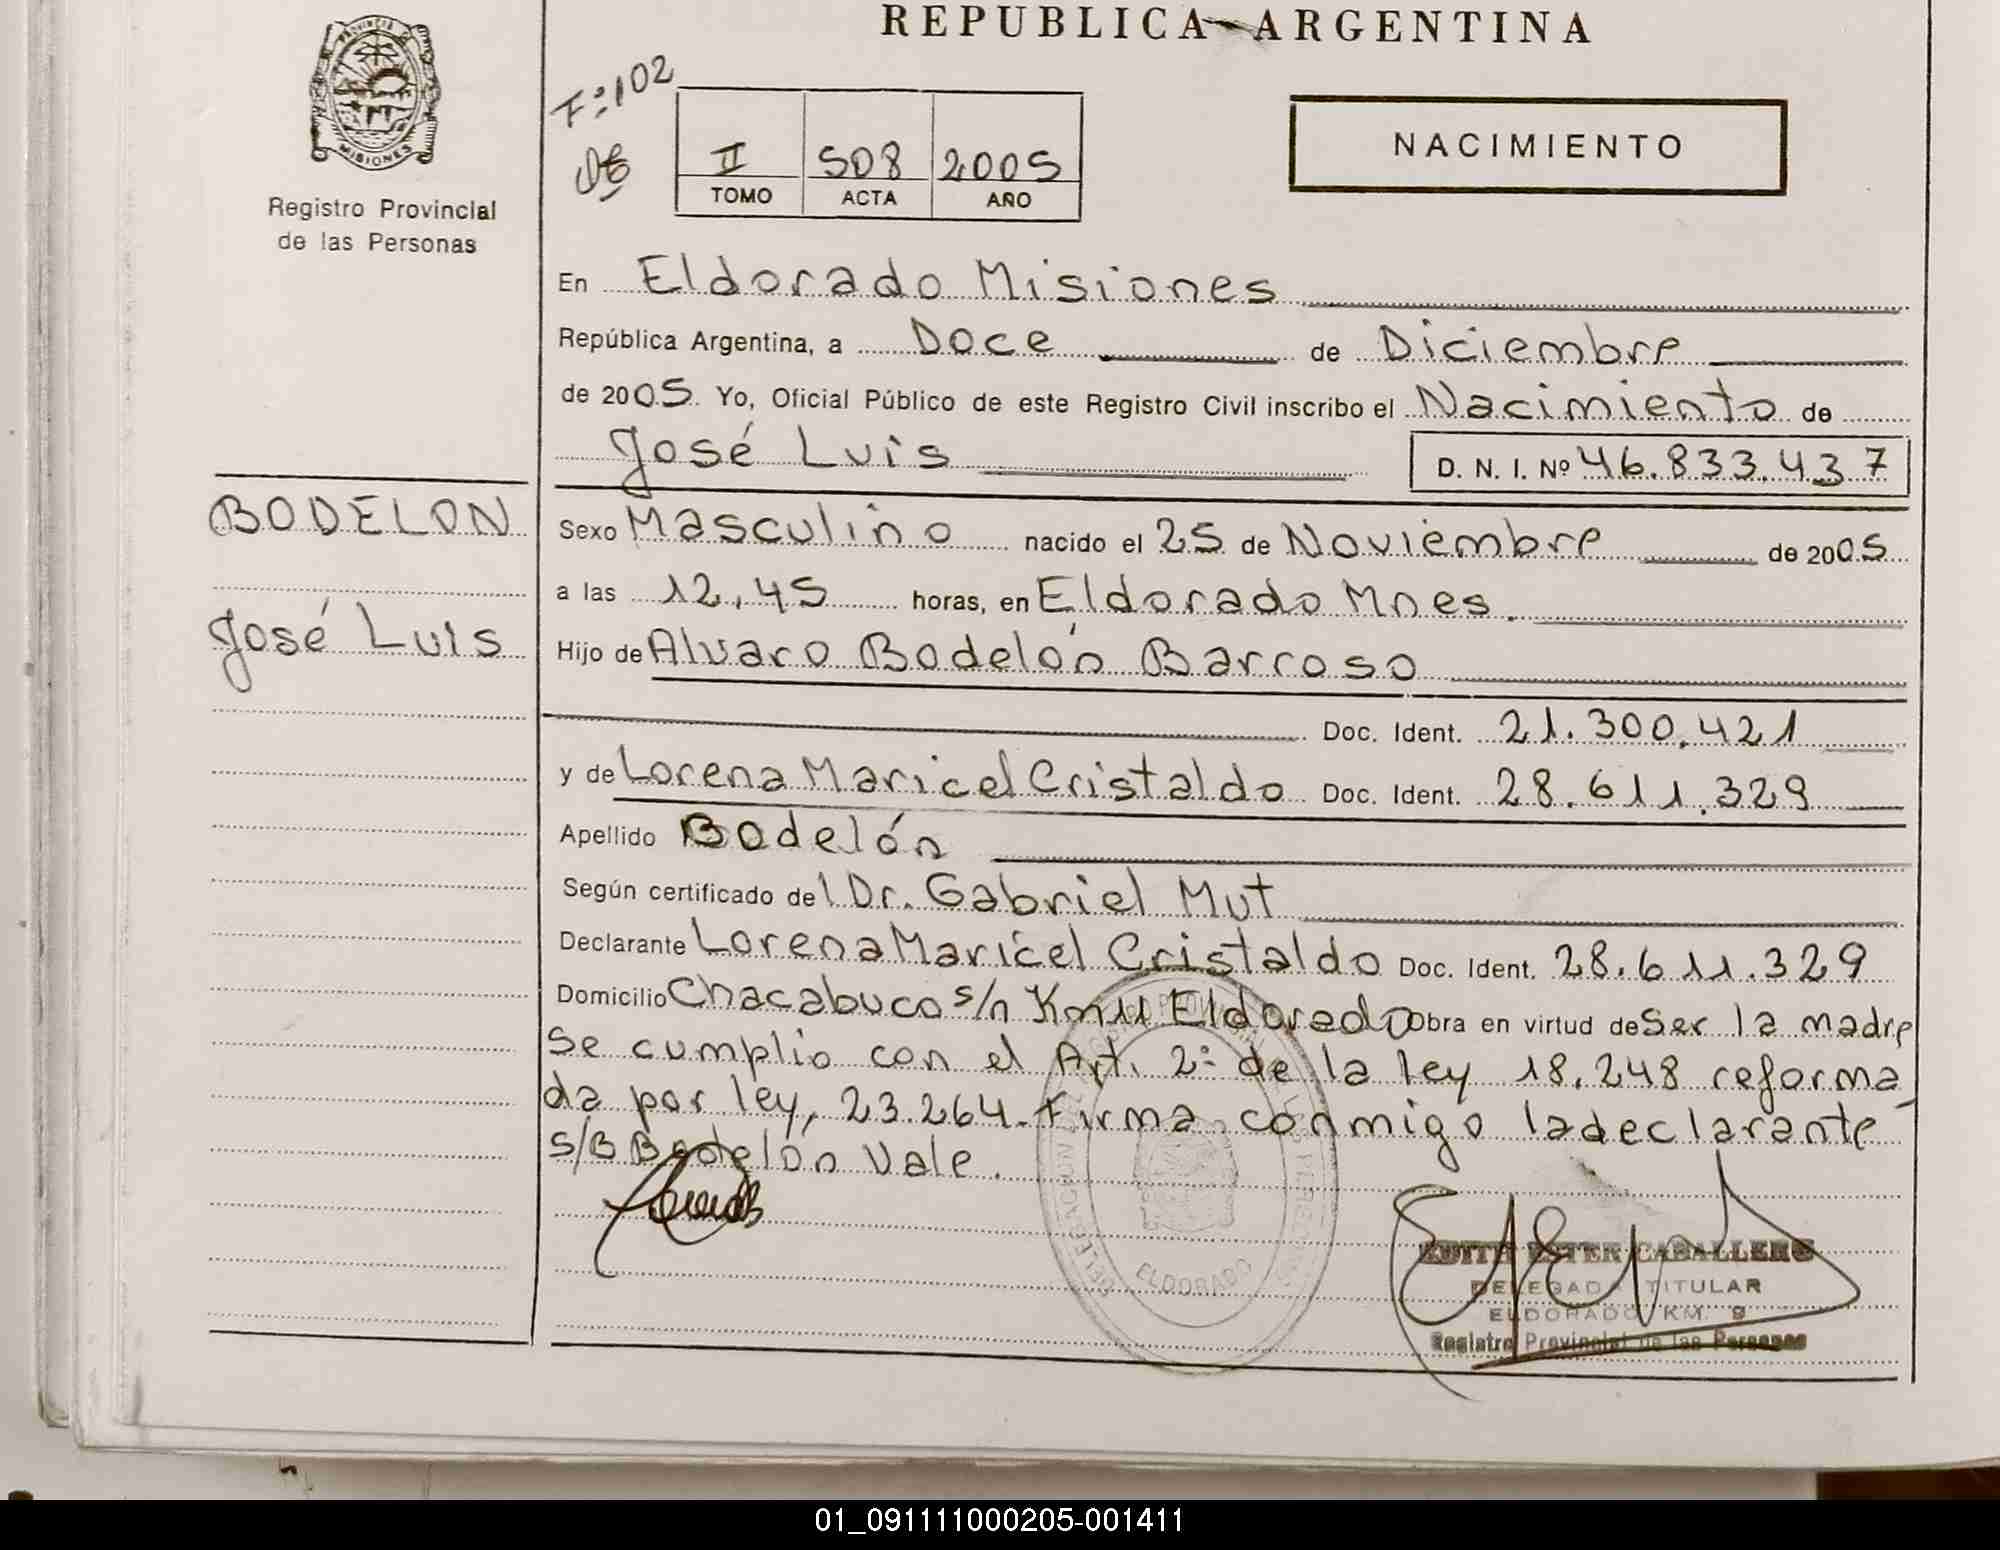 REPUBLICA ARGENTINA
PROVINCIA DE MISIONES
Registro Provincial
de las Personas
Fº 102
II 508 2005
TOMO ACTA AÑO
NACIMIENTO
En Eldorado Misiones
República Argentina, a Doce de Diciembre
de 2005 Yo, Oficial Público de este Registro Civil inscribo el Nacimiento de
José Luis D. N. I. Nº 46.833.437
BODELON
José Luis
Sexo Masculino nacido el 25 de Noviembre de 2005
a las 12,45 horas, en Eldorado Mnes.
Hijo de Alvaro Bodelón Barroso
Doc. Ident. 21.300.421
y de Lorena Maricel Cristaldo Doc. Ident. 28.611.329
Apellido Bodelón
Según certificado del Dr. Gabriel Mut
Declarante Lorena Maricel Cristaldo Doc. Ident. 28.611.329
Domicilio Chacabuco s/n Km 11 Eldorado Obra en virtud de Ser la madre
Se cumplio con el Art. 2º de la ley 18.248 reforma
da por ley, 23.264. Firma conmigo la declarante
S/B Bodelón Vale.
ELDORADO
EDITH ESTER CABALLERO
DELEGADA TITULAR
ELDORADO KM. 9
Registro Provincial de las Personas
01_091111000205-001411